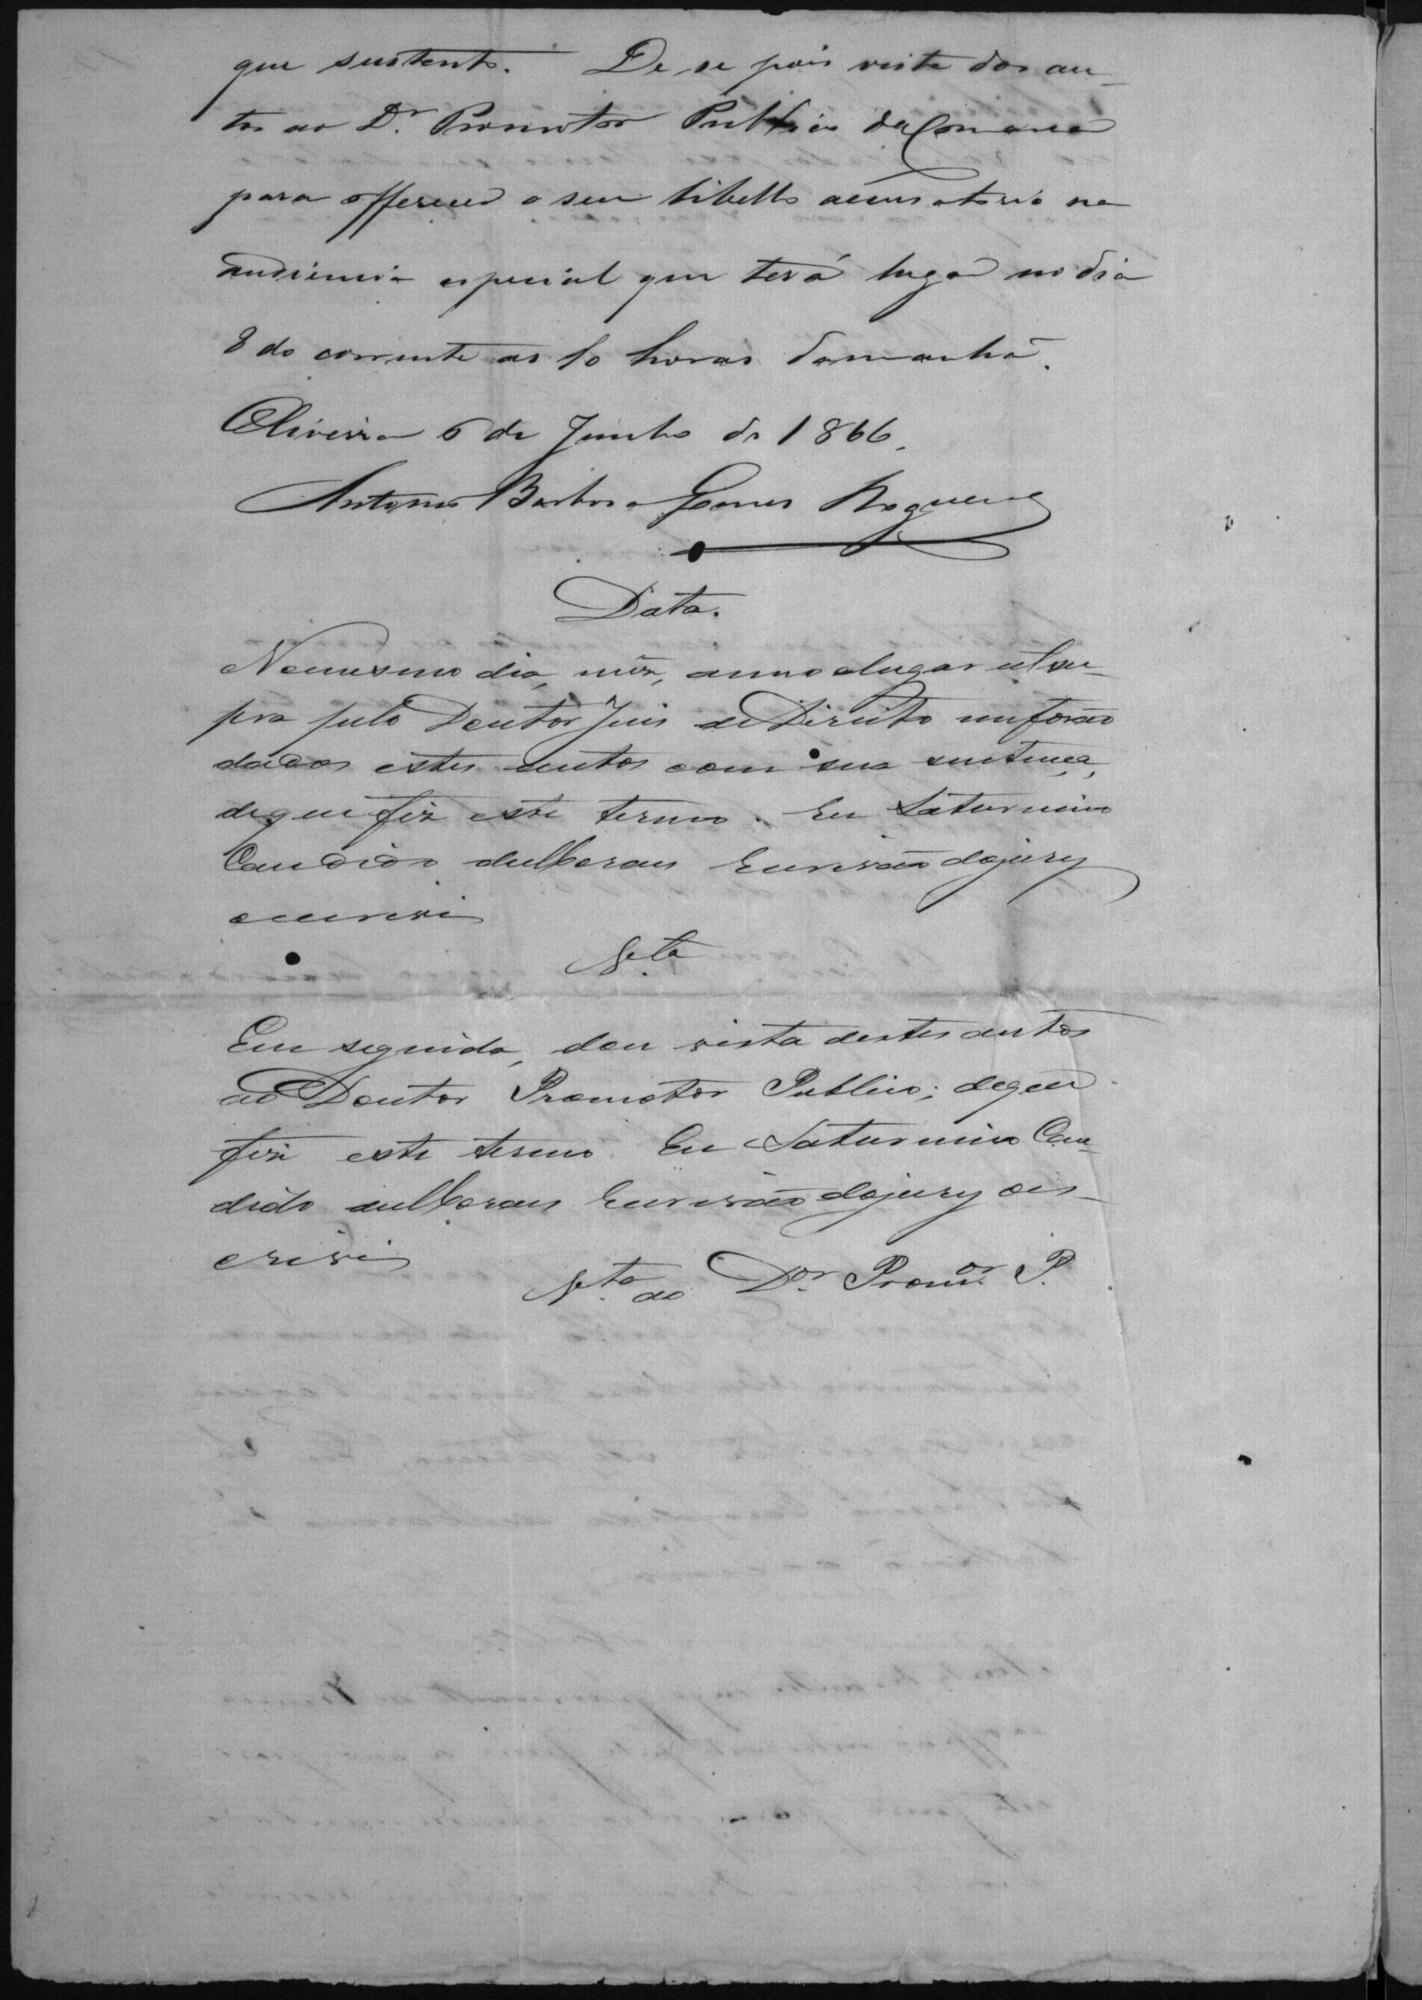 que sustento. De se pois vista dos au-
tos ao Dr. Promotor Publico da Comarca
para offerecer o seu libello accusatorio na
audiencia especial que terá lugar no dia
8 do corrente as 10 horas da manhã.
Oliveira 6 de Junho de 1866.
Antonio Barbosa Gomes Nogueira
Data.
No mesmo dia, mez, anno e lugar ut su-
pra pelo Doutor Juis de Direito me forão
dados estes autos com sua sentença,
de que fiz este termo. Eu Saturnino
Candido Escrivão do jury
o escrevi
Vta
Em seguida, dou vista destes autos
ao Doutor Promotor Publico; de que
fiz este termo. Eu Saturnino Can-
dido Escrivão do jury o es-
crevi
Vta ao Dor Promor P.